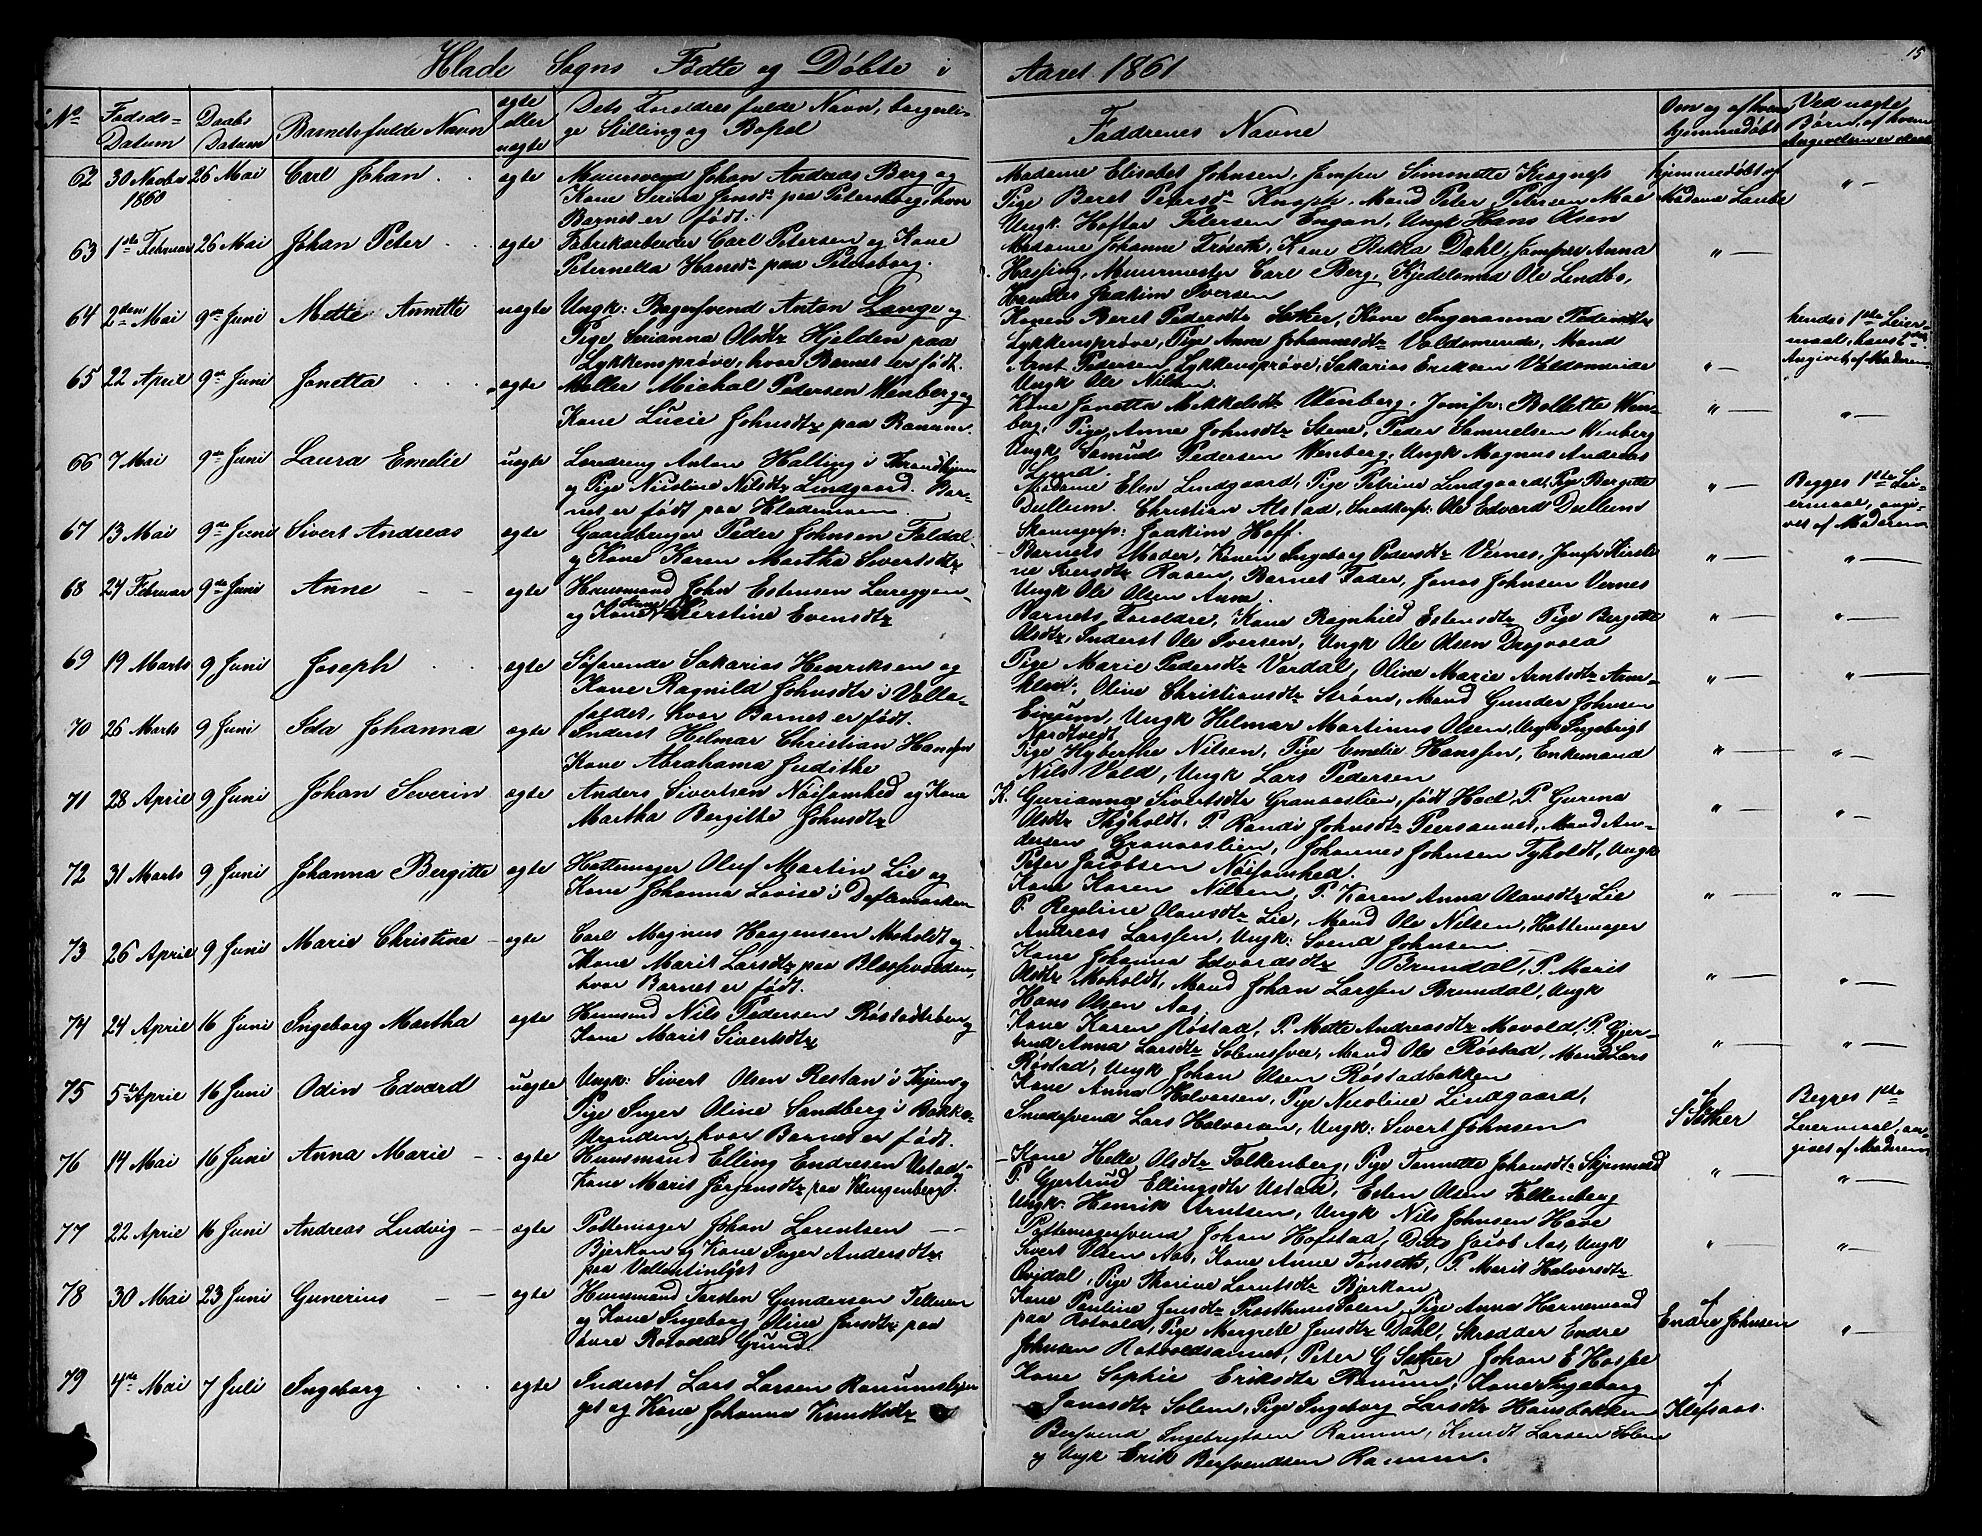 15
Hlade Sogns Fødte og Døbte i Aaret 1861
No Fødsels-Datum Daabs Datum Barnets fulde Navn ægte eller uægte Dets Forældres fulde Navn, borgerlige Stilling og Bopæl Faddrenes Navne Om og af hvem hjemmedøbt Ved uægte Børn, af hvem Angivelsen er skeet
62 30 Novbr 1860 26 Mai Carl Johan ægte Muursvend Johan Andreas Berg og
Kone Serina Jensdtr paa Petersborg, hvor
Barnet er født.
Madame Elisabet Johnsen, Jomfru Simmette Kragness
Pige Beret Peersdtr Knoph, Mand Peter Petersen Moe
Ungk. Hoftar Petersen Engan, Ungk Hans Olsen
hjemmedøbt af
Madame Laube
63 1ste Februar 26 Mai Johan Peter ægte Fabrikarbeider Carl Petersen og Kone
Peternella Hansdtr paa Petersborg.
Madame Johanne Trøseth, Kone Rikka Dahl, Jomfru Anna
Hassing, Muurmester Carl Berg, Kjedelsmed Ole Lindbo,
Joakim Iversen
64 2den Mai 9de Juni Mette Annette uægte Ungk: Bagersvend Anton Lange og
Pige Serianna Olsdtr Hjelden paa
Lykkensprøve, hvor Barnet er født.
Konen Beret Pedersdtr Sæther, Kone Ingeranna Pedersdtr
Lykkensprøve, Pige Anne Johannesdtr Valdsmende, Mand
Arnt Pedersen Lykkensprøve, Sakarias Eriksen Valdsmeide
Ungk Ole Nilsen.
hendes 1ste Leiermaal, hans
Angivet af Moderen
65 22 April 9de Juni Jonetta ægte Møller Michal Pedersen Wenberg og
Kone Lucie Johnsdtr paa Ranum.
Kone Jonetta Mikkelsdtr Wenberg, Jomfr: Bollette Wenberg,
Pige Anne Johnsdtr Stene, Peder Samuelsen Wenberg
Ungk Samuel Pedersen Wenberg, Ungk Magnus Andreas
Lund.
66 7 Mai 9de Juni Laura Emelie uægte Læredreng Anton Halting i Trondhjem
og Pige Nicoline Nilsdtr Lindgaard. Barnet
er født paa Hlademoen.
Madame Elen Lindgaard, Pige Petrine Lindgaard, Pige Bergitte
Dullum. Christian Alstad, Snedkersv: Ole Edvard Dullum
Skomagersv: Joakim Hoff.
Begges 1ste Leiermaal, angivet
af Moderen
67 13 Mai 9de Juni Sivert Andreas ægte Gaardbruger Peder Johnsen Foldal
og Kone Karen Martha Sivertsdtr
Barnets Moder, Konen Ingeborg Pedersdtr Vernes, Jomfr Kirstine
Iversdtr Rosen, Barnets Fader, Jonas Johnsen Vernes
Ungk Ole Olsen Anna.
68 24 Februar 9de Juni Anne ægte Huusmand John Estensen Leereggen
og Kone Anne Kierstine Evensdtr
Barnets Forældre, Kone Ragnhild Estensdtr Pige Bergitte
Olsdtr, Inderst Ole Iversen, Ungk Ole Olsen Dragvold
69 19 Marts 9 Juni Joseph ægte Søfarende Sakarias Henriksen og
Kone Ragnild Johnsdtr i Vollafaldet,
hvor Barnet er født.
Pige Marie Pedersdtr Vordal, Oline Marie Arntsdtr
Oline Christiansdtr Strøm, Mand Gunder Johnsen
Einum, Ungk Helmar Martinus Olsen, Ungk Ingebrigt
Nordtvedt
70 26 Marts 9 Juni Ida Johanna ægte Inderst Helmar Christian Hansen
Kone Abrahama Judithe
Pige Hyberthe Nilsen, Pige Emelie Hanssen, Enkemand
Nils Vold, Ungk Lars Pedersen
71 28 April 9 Juni Johan Severin ægte Anders Sivertsen Nøisomhed og Kone
Martha Bergithe Johnsdtr
K. Gurianna Sivertsdtr Granaaslien, født Hoel, P. Gurina
Olsdtr Thyholdt, P. Randi Johnsdtr Peersaunet, Mand Andersen
Granaaslien, Johannes Johnsen Tyholdt, Ungk
Peter Jacobsen Nøisomhed.
72 31 Marts 9 Juni Johanna Bergitte ægte Hattemager Oluf Martin Lie og
Kone Johanna Lovise i Døflemarken
Kone Karen Nilsen, P. Karen Anna Olausdtr Lie
P. Regeline Olausdtr Lie, Mand Ole Nilsen, Hattemager
Andreas Larssen, Ungk: Svend Johnsen
73 26 April 9 Juni Marie Christine ægte Carl Magnus Haagensen Moholdt og
Kone Marit Larsdtr paa Blessevolden,
hvor Barnet er født.
Kone Johanna Edvardsdtr Brundal, P. Marit
Olsdtr Moholdt, Mand Johan Larssen Brundal, Ungk
Hans Olsen Aas,
74 24 April 16 Juni Ingeborg Martha ægte Huusmd Nils Pedersen Røstadteben og
Kone Marit Sivertsdtr
Kone Karen Røstad, P. Mette Andreasdtr Movold, P. Gjertrud
Anna Larsdtr Solemsøre, Mand Ole Røstad, Mand Lars
Røstad, Ungk Johan Olsen Røstadbakken
75 5te April 16 Juni Odin Edvard uægte Ungk: Sivert Olsen Restan i Thjem og
Pige Inger Oline Sandberg i Bakkestranden,
hvor Barnet er født.
Kone Anna Halvorsen, Pige Nicoline Lindgaard,
Smedesvend Lars Halvorsen, Ungk: Sivert Johnsen
af
Sæther
Begges 1ste
Leiermaal, angivet
af Moderen
76 14 Mai 16 Juni Anna Marie ægte Huusmand Elling Endresen Ustad og
Kone Marit Jørgensdtr paa Klingenberg.
Kone Helle Olsdtr Falkenberg, Pige Tannette Johansdtr
P. Gjertrud Ellingsdtr Ustad, Esten Olsen Falkenberg
Ungk: Henrik Arntsen, Ungk Nils Johnsen Hove
77 22 April 16 Juni Andreas Ludvig ægte Pottemager Johan Lorentsen
Bjerkan og Kone Inger Andersdtr
paa Vallentinlyst
Pottemagersvend Johan Hofstad, Ditto Jacob Aas, Ungk
Sivert Olsen Nob, Kone Anne Tonseth, P. Marit Halvorsdtr
Opdal, Pige Thorine Lorntsdtr Bjerkan.
78 30 Mai 23 Juni Gunerius ægte Huusmand Torsten Gundersen Telluen
og Kone Ingeborg Oline Jensdtr paa
store Rotvolds Grund.
Kone Pauline Jensdtr Presthussolen, Pige Anna Hornemand
paa Rotvold, Pige Margrete Jensdtr Dahl, Skrædder Endre
Johnsen Rotvoldsaunet, Peter G Sæther Johan E Haspe
af
Endre Johnsen
79 4de Mai 7 Juli Ingeborg ægte Inderst Lars Larsen Ranumslyng
get og Kone Johanna Knudtsdtr
Kone Sophie Eriksdtr Ranum, Kone Ingeborg
Jonasdtr Solem, Pige Ingeborg Larsdtr Hansbakken
Bersvend Ingebrigtsen Ranum, Knudt Larsen Solem
og Ungk Erik Bersvendsen Ranum.
af
Klefsaas.